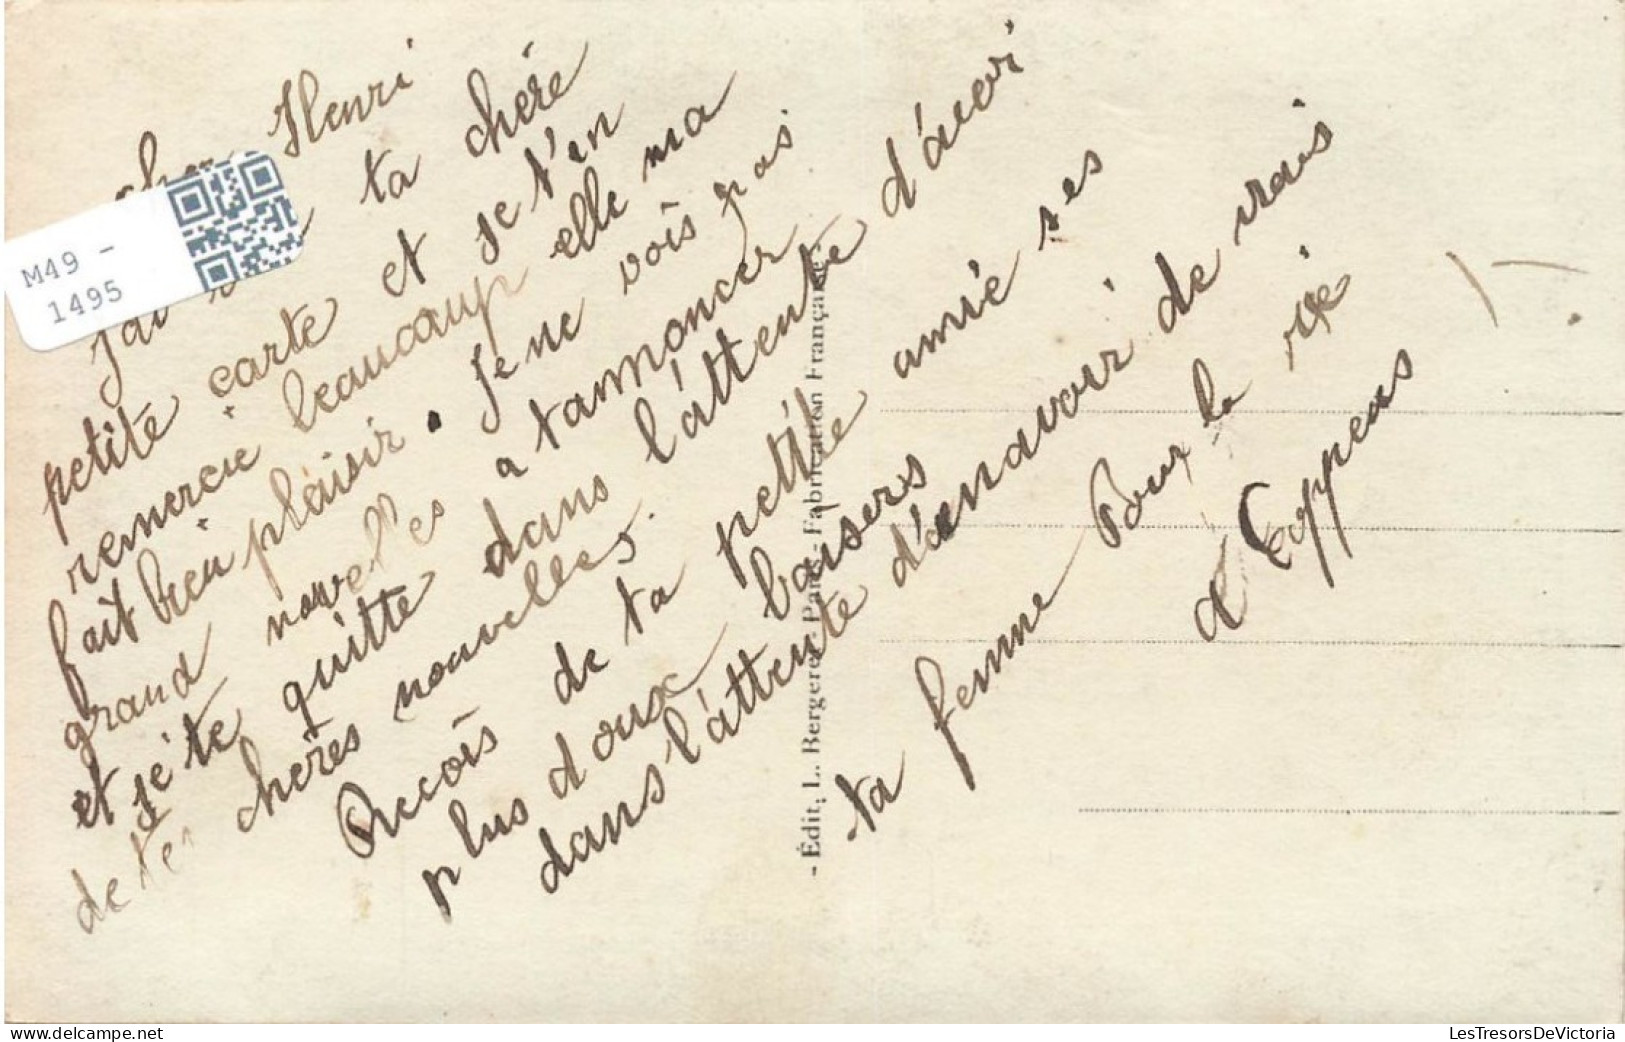 cher Henri
J'ai ta chéré
petite carte et je t'en
remercie beaucoup elle ma
fait bien plaisir. Je ne vois pas
grand nouvelles a tannoncer
et je te quitte dans l'attente d'avoi
de tes chères nouvelles.
Recois de ta petite amie ses
plus doux baisers
dans l'attente d'en avoir de vrais
ta femme Pour la vie
A Coppens
- Édit, L. Berger, Paris - Fabrication Française
M49 -
1495
LesTresorsDeVictoria.com
LesTresorsDeVictoria